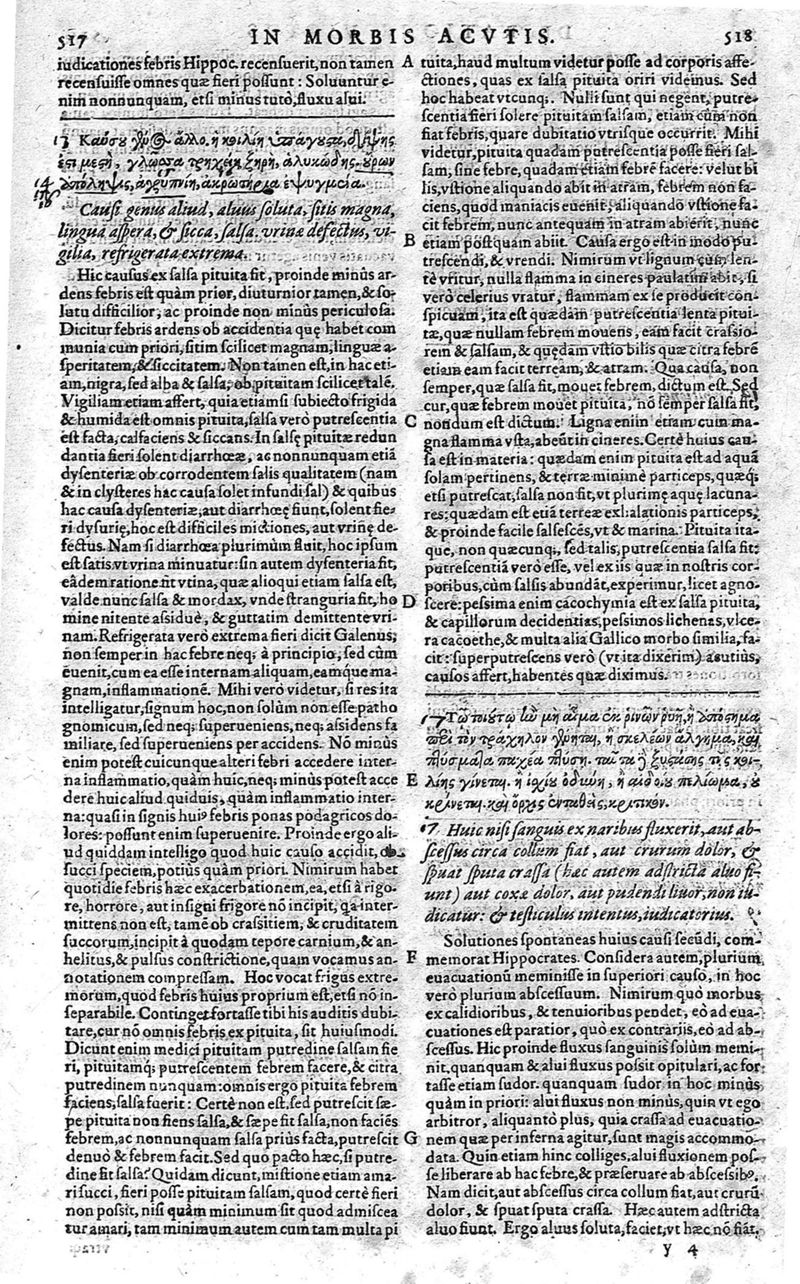 517
IN MORBIS ACVTIS.
518
iudicationes febris Hippoc. recensuerit, non tamen
recensuisse omnes quæ fieri possunt: Soluuntur e-
nim nonnunquam, etsi minus tutò, fluxu alui.
13 Καύσου ἄλλο. ἡ κοιλίη
γλῶσσα τρηχείη, ξηρὴ, ἁλυκώδης. οὔρων
14 ἀπόληψις, ἀγρυπνίη, ἀκρωτήρια
Causi genus aliud, aluus soluta, sitis magna,
lingua aspera, & sicca, salsa, vrinæ defectus, vi-
gilia, refrigerata extrema.
Hic causus ex salsa pituita fit, proinde minùs ar-
dens febris est quàm prior, diuturnior tamen, & so-
lutu difficilior, ac proinde non minùs periculosa.
Dicitur febris ardens ob accidentia quę habet com
munia cum priori, sitim scilicet magnam, linguæ a-
speritatem, & siccitatem. Non tamen est, in hac eti-
am, nigra, sed alba & salsa, ob pituitam scilicet talē.
Vigiliam etiam affert, quia etiamsi subiecto frigida
& humida est omnis pituita, salsa verò putrescentia
est facta, calfaciens & siccans. In salsę pituitæ redun
dantia fieri solent diarrhœæ, ac nonnunquam etiā
dysenteriæ ob corrodentem salis qualitatem (nam
& in clysteres hac causa solet infundi sal) & quibus
hac causa dysenteriæ, aut diarrhœę fiunt, solent fie-
ri dysurię, hoc est difficiles mictiones, aut vrinę de-
fectus. Nam si diarrhœa plurimùm fluit, hoc ipsum
est satis vt vrina minuatur: sin autem dysenteria fit,
eâdem ratione fit vt ina, quæ alioqui etiam salsa est,
valde nunc salsa & mordax, vnde stranguria fit, ho
mine nitente assiduè, & guttatim demittente vri-
nam. Refrigerata verò extrema fieri dicit Galenus;
non semper in hac febre neq; à principio, sed cùm
euenit, cum ea esse internam aliquam, eamque ma-
gnam, inflammationē. Mihi verò videtur, si res ita
intelligatur, signum hoc, non solùm non esse patho
gnomicum, sed neq; superueniens, neq; assidens fa
miliare, sed superueniens per accidens. Nō minùs
enim potest cuicunque alteri febri accedere inter-
na inflammatio, quàm huic, neq; minùs potest acce
dere huic aliud quiduis, quàm inflammatio inter-
na: quasi in signis huiꝰ febris ponas podagricos do-
lores: possunt enim superuenire. Proinde ergo ali-
ud quiddam intelligo quod huic causo accidit, ob
succi speciem, potiùs quàm priori. Nimirum habet
quotidie febris hæc exacerbationem, ea, etsi à rigo-
re, horrore, aut insigni frigore nō incipit, qa inter-
mittens non est, tamē ob crassitiem, & cruditatem
succorum, incipit à quodam tepore carnium, & an-
helitus, & pulsus constrictione, quam vocamus an-
notationem compressam. Hoc vocat frigus extre-
morum, quod febris huius proprium est, etsi nō in-
separabile. Continget fortasse tibi his auditis dubi-
tare, cur nō omnis febris, ex pituita, sit huiusmodi.
Dicunt enim medici pituitam putredine salsam fie
ri, pituitamq; putrescentem febrem facere, & citra
putredinem nunquam: omnis ergo pituita febrem
faciens, salsa fuerit: Certè non est, sed putrescit sæ-
pe pituita non fiens salsa, & sæpe fit salsa, non faciēs
febrem, ac nonnunquam salsa priùs facta, putrescit
denuò & febrem facit. Sed quo pacto hæc, si putre-
dine fit salsa? Quidam dicunt, mistione etiam ama-
ri succi, fieri posse pituitam salsam, quod certè fieri
non possit, nisi quàm minimum sit quod admiscea
tur amari, tam minimum autem cum tam multa pi
A tuita, haud multum videtur posse ad corporis affe-
ctiones, quas ex salsa pituita oriri videmus. Sed
hoc habeat vtcunq;. Nulli sunt qui negent, putre-
scentia fieri solere pituitam salsam, etiam cùm non
fiat febris, quare dubitatio vtrisque occurrit. Mihi
videtur, pituita quadam putrescentia posse fieri sal-
sam, sine febre, quadam etiam febrē facere: velut bi
lis, vstione aliquando abit in atram, febrem non fa-
ciens, quod maniacis euenit, aliquando vstione fa-
cit febrem, nunc antequam in atram abierit, nunc
B etiam postquam abiit. Causa ergo est in modo pu-
trescendi, & vrendi. Nimirum vt lignum cum len-
tè vritur, nulla flamma in cineres paulatim abit, si
verò celerius vratur, flammam ex se producit con-
spicuam, ita est quædam putrescentia lenta pitui-
tæ, quæ nullam febrem mouens, eam facit crassio-
rem & salsam, & quędam vstio bilis quæ citra febrē
etiam eam facit terream, & atram. Qua causa, non
semper, quæ salsa fit, mouet febrem, dictum est. Sed
cur, quæ febrem mouet pituita, nō semper salsa fit,
C nondum est dictum. Ligna eniin etiam cum ma-
gna flamma vsta, abeūt in cineres. Certè huius cau-
sa est in materia: quædam enim pituita est ad aquā
solam pertinens, & terræ minimè particeps, quæq;
etsi putrescat, salsa non fit, vt plurimę aquę lacuna-
res: quædam est etiā terreæ exhalationis particeps,
& proinde facile salsescēs, vt & marina. Pituita ita-
que, non quæcunq;, sed talis, putrescentia salsa fit:
putrescentiâ verò esse, vel ex iis quæ in nostris cor-
poribus, cùm salsis abundāt, experimur, licet agno-
D scere: pessima enim cacochymia est ex salsa pituita,
& capillorum decidentias, pessimos lichenas, vlce-
ra cacoethe, & multa alia Gallico morbo similia, fa-
cit: superputrescens verò (vt ita dixerim) asutius,
causos affert, habentes quæ diximus.
17 Τῶ τοιούτῳ ἢν μὴ αἷμα ἐκ ῥινῶν ῥυῇ, ἢ ἀπόστημα
περὶ τὸν τράχηλον γένηται, ἢ σκελέων ἄλγημα, καὶ
πτύσματα παχέα πτύσῃ. ταῦτα
E λίης γίνεται. ἢ ἰσχίου ὀδύνη, ἢ αἰδοίου πελίωμα, οὐ
κρίνεται. καὶ ὄρχις ἐνταθεὶς, κριτικόν.
17. Huic nisi sanguis ex naribus fluxerit, aut ab-
scessus circa collum fiat, aut crurum dolor, &
spuat sputa crassa (hæc autem adstricta aluo fi-
unt) aut coxæ dolor, aut pudendi liuor, non iu-
dicatur: & testiculus intentus, iudicatorius.
Solutiones spontaneas huius causi secūdi, com-
F memorat Hippocrates. Considera autem, plurium
euacuationū meminisse in superiori causo, in hoc
verò plurium abscessuum. Nimirum quò morbus
ex calidioribus, & tenuioribus pendet, eò ad eua-
cuationes est paratior, quò ex contrariis, eò ad ab-
scessus. Hic proinde fluxus sanguinis solùm memi-
nit, quanquam & alui fluxus possit opitulari, ac for
tasse etiam sudor. quanquam sudor in hoc minùs
quàm in priori: alui fluxus non minùs, quin vt ego
arbitror, aliquantò plus, quia crassa ad euacuatio-
G nem quæ per inferna agitur, sunt magis accommo-
data. Quin etiam hinc colliges, alui fluxionem pos-
se liberare ab hac febre, & præseruare ab abscessibꝰ.
Nam dicit, aut abscessus circa collum fiat, aut crurū
dolor, & spuat sputa crassa. Hæc autem adstricta
aluo fiunt. Ergo aluus soluta, faciet, vt hæc nō fiāt.
y 4